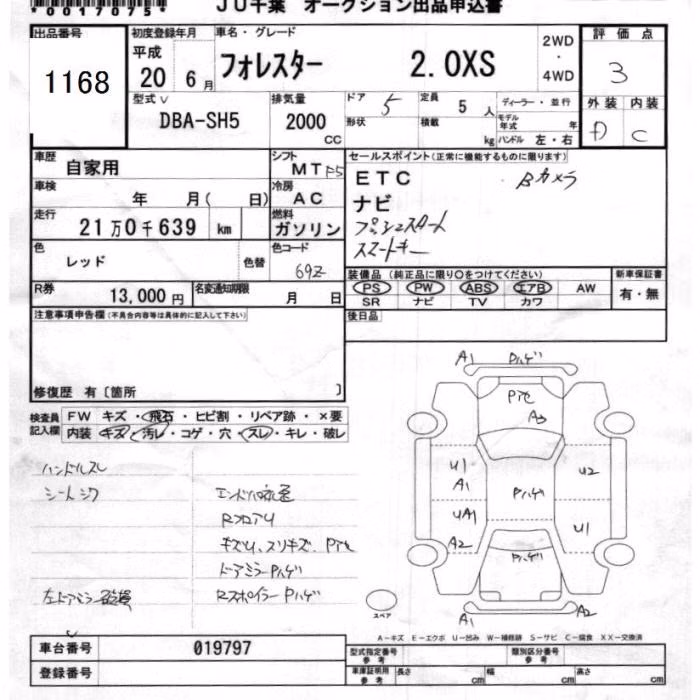 *0017075*
JU千葉 オークション出品申込書
出品番号
1168
初度登録年月
平成
20 6月
車名・グレード
フォレスター 2.0XS
2WD
・
4WD
評価点
3
外装 内装
D C
型式
DBA-SH5
排気量
2000
CC
ドア 5
形状
定員 5 人
積載 kg
ディーラー・並行
モデル年式 年
ハンドル 左・右
車歴
自家用
シフト
MT F5
車検 年 月( 日)
冷房
AC
走行
21万0千639 km
燃料
ガソリン
色
レッド
色替
色コード
69Z
R券
13,000円
名変通知期限
月 日
セールスポイント(正常に機能するものに限ります)
ETC Bカメラ
ナビ
プッシュスタート
スマートキー
装備品(純正品に限り○をつけてください)
PS PW ABS エアB AW
SR ナビ TV カワ
新車保証書
有・無
後日品
注意事項申告欄(不具合内容等は具体的に記入して下さい)
修復歴 有〔箇所 〕
検査員
記入欄
FW キズ・飛石・ヒビ割・リペア跡・×要
内装 キズ・汚レ・コゲ・穴・スレ・キレ・破レ
ハンドルスレ
シートシワ
RフロアU
キズU、スリキズ、Pアセ
ドアミラーPハゲ
左ドアミラー破損
RスポイラーPハゲ
A1 Pハゲ
Pアセ
A3
U1
A1
Pハゲ
U2
UA1
U1
A2
Pハゲ
A1
A2
スペア
A－キズ E－エクボ U－凹み W－補修跡 S－サビ C－腐食 XX－交換済
車台番号 019797
登録番号
型式指定番号
参考
類別区分番号
参考
車庫証明用
参考
長さ cm 幅 cm 高さ cm